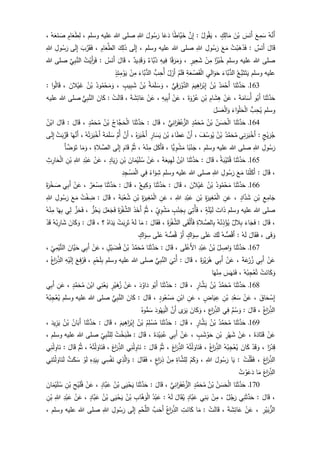 أَنَّهُ سَمِعَ أَنَسَ بْنَ مَالِكٍ ، يَقُولُ : إِنَّ خَيَّاطًا دَعَا رَسُولَ اللهِ صلى الله عليه وسلم ، لِطَعَامٍ صَنَعَهُ ،
قَالَ أَنَسٌ : فَذَهَبْتُ مَعَ رَسُولِ اللهِ صلى الله عليه وسلم ، إِلَى ذَلِكَ الطَّعَامِ ، فَقَرَّبَ إِلَى رَسُولِ اللهِ
صلى الله عليه وسلم خُبْزًا مِنْ شَعِيرٍ ، وَمَرَقًا فِيهِ دُبَّاءٌ وَقَدِيدٌ ، قَالَ أَنَسُ : فَرَأَيْتُ النَّبِيَّ صلى الله عليه
وسلم يَتَتَبَّعُ الدُّبَّاءَ حَوَالَيِ الْقَصْعَةِ فَلَمْ أَزَلْ أُحِبُّ الدُّبَّاءَ مِنْ يَوْمَئِذٍ
163. حَدَّثَنَا أَحْمَدُ بْنُ إِبْرَاهِيمَ الدَّوْرَقِيُّ ، وَسَلَمَةُ بْنُ شَبِيبٍ ، وَمَحْمُودُ بْنُ غَيْلاَنَ ، قَالُوا :
حَدَّثَنَا أَبُو أُسَامَةَ ، عَنْ هِشَامِ بْنِ عُرْوَةَ ، عَنْ أَبِيهِ ، عَنْ عَائِشَةَ ، قَالَتْ : كَانَ النَّبِيُّ صلى الله عليه
وسلم يُحِبُّ الْحَلْوَاءَ وَالْعَسَلَ
164. حَدَّثَنَا الْحَسَنُ بْنُ مُحَمَّدٍ الزَّعْفَرَانِيُّ ، قَالَ : حَدَّثَنَا حَجَّاجُ بْنُ مُحَمَّدٍ ، قَالَ : قَالَ ابْنُ
جُرَيْجٍ : أَخْبَرَنِي مُحَمَّدُ بْنُ يُوسُفَ ، أَنَّ عَطَاءَ بْنَ يَسَارٍ أَخْبَرَهُ ، أَنَّ أُمَّ سَلَمَةَ أَخْبَرَتْهُ ، أَنَّهَا قَرَّبَتْ إِلَى
رَسُولِ اللهِ صلى الله عليه وسلم جَنْبًا مَشْوِيًّا ، فَأَكَلَ مِنْهُ ، ثُمَّ قَامَ إِلَى الصَّلاَةِ ، وَمَا تَوَضَّأَ
165. حَدَّثَنَا قُتَيْبَةُ ، قَالَ : حَدَّثَنَا ابْنُ لَهِيعَةَ ، عَنْ سُلَيْمَانَ بْنِ زِيَادٍ ، عَنْ عَبْدِ اللهِ بْنِ الْحَارِثِ
، قَالَ : أَكَلْنَا مَعَ رَسُولِ اللهِ صلى الله عليه وسلم شِوَاءً فِي الْمَسْجِدِ
166. حَدَّثَنَا مَحْمُودُ بْنُ غَيْلاَنَ ، قَالَ : حَدَّثَنَا وَكِيعٌ ، قَالَ : حَدَّثَنَا مِسْعَرٌ ، عَنْ أَبِي صَخْرَةَ
جَامِعِ بْنِ شَدَّادٍ ، عَنِ الْمُغِيرَةِ بْنِ عَبْدِ اللهِ ، عَنِ الْمُغِيرَةِ بْنِ شُعْبَةَ ، قَالَ : ضِفْتُ مَعَ رَسُولِ اللهِ
صلى الله عليه وسلم ذَاتَ لَيْلَةٍ ، فَأُتِيَ بِجَنْبٍ مَشْوِيٍّ ، ثُمَّ أَخَذَ الشَّفْرَةَ فَجَعَلَ يَحُزُّ ، فَحَزَّ لِي بِهَا مِنْهُ
، قَالَ : فَجَاءَ بِلاَلٌ يُؤْذِنُهُ بِالصَّلاَةِ فَأَلْقَى الشَّفْرَةَ ، فَقَالَ : مَا لَهُ تَرِبَتْ يَدَاهُ ؟ ، قَالَ : وَكَانَ شَارِبُهُ قَدْ
وَفَى ، فَقَالَ لَهُ : أَقُصُّهُ لَكَ عَلَى سِوَاكٍ أَوْ قُصُّهُ عَلَى سِوَاكٍ
167. حَدَّثَنَا وَاصِلُ بْنُ عَبْدِ الأَعْلَى ، قَالَ : حَدَّثَنَا مُحَمَّدُ بْنُ فُضَيْلٍ ، عَنْ أَبِي حَيَّانَ التَّيْمِيِّ ،
عَنْ أَبِي زُرْعَةَ ، عَنْ أَبِي هُرَيْرَةَ ، قَالَ : أُتِيَ النَّبِيُّ صلى الله عليه وسلم بِلَحْمٍ ، فَرُفِعَ إِلَيْهِ الذِّرَاعُ ،
وَكَانَتْ تُعْجِبُهُ ، فَنَهَسَ مِنْهَا
168. حَدَّثَنَا مُحَمَّدُ بْنُ بَشَّارٍ ، قَالَ : حَدَّثَنَا أَبُو دَاوُدَ ، عَنْ زُهَيْرٍ يَعْنِي ابْنَ مُحَمَّدٍ ، عَنْ أَبِي
إِسْحَاقَ ، عَنْ سَعْدِ بْنِ عِيَاضٍ ، عَنِ ابْنِ مَسْعُودٍ ، قَالَ : كَانَ النَّبِيُّ صلى الله عليه وسلم يُعْجِبُهُ
الذِّرَاعُ ، قَالَ : وَسُمَّ فِي الذِّرَاعِ ، وَكَانَ يَرَى أَنَّ الْيَهُودَ سَمُّوهُ
169. حَدَّثَنَا مُحَمَّدُ بْنُ بَشَّارٍ ، قَالَ : حَدَّثَنَا مُسْلِمُ بْنُ إِبْرَاهِيمَ ، قَالَ : حَدَّثَنَا أَبَانُ بْنُ يَزِيدَ ، عَنْ
قَتَادَةَ ، عَنْ شَهْرِ بْنِ حَوْشَبٍ ، عَنْ أَبِي عُبَيْدَةَ ، قَالَ : طَبَخْتُ لِلنَّبِيِّ صلى الله عليه وسلم ،
قِدْرًا ، وَقَدْ كَانَ يُعْجِبُهُ الذِّرَاعُ ، فَنَاوَلْتُهُ الذِّرَاعَ ، ثُمَّ قَالَ : نَاوِلْنِي الذِّرَاعَ ، فَنَاوَلْتُهُ ، ثُمَّ قَالَ : نَاوِلْنِي
الذِّرَاعَ ، فَقُلْتُ : يَا رَسُولَ اللهِ ، وَكَمْ لِلشَّاةِ مِنْ ذِرَاعٍ ، فَقَالَ : وَالَّذِي نَفْسِي بِيَدِهِ لَوْ سَكَتَّ لَنَاوَلْتَنِي
الذِّرَاعَ مَا دَعَوْتُ
170. حَدَّثَنَا الْحَسَنُ بْنُ مُحَمَّدٍ الزَّعْفَرَانِيُّ ، قَالَ : حَدَّثَنَا يَحْيَى بْنُ عَبَّادٍ ، عَنْ فُلَيْحِ بْنِ سُلَيْمَانَ
، قَالَ : حَدَّثَنِي رَجُلٌ ، مِنْ بَنِي عَبَّادٍ يُقَالُ لَهُ : عَبْدُ الْوَهَّابِ بْنُ يَحْيَى بْنِ عَبَّادٍ ، عَنْ عَبْدِ اللهِ بْنِ
الزُّبَيْرِ ، عَنْ عَائِشَةَ ، قَالَتْ : مَا كَانَتِ الذِّرَاعُ أَحَبَّ اللَّحْمِ إِلَى رَسُولِ اللهِ صلى الله عليه وسلم ،